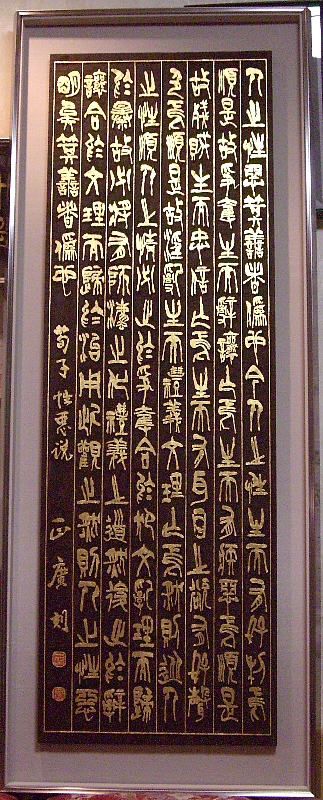 人之性惡其善者偽也今人之性生而有好利焉
順是故爭奪生而辭讓亡焉生而有疾惡焉順是
故殘賊生而忠信亡焉生而有耳目之欲有好聲
色焉順是故淫亂生而禮義文理亡焉然則從人
之性順人之情必出於爭奪合於犯文亂理而歸
於暴故必將有師法之化禮義之道然後出於辭
讓合於文理而歸於治用此觀之然則人之性惡
明矣其善者偽也 荀子性惡说 正廣刻